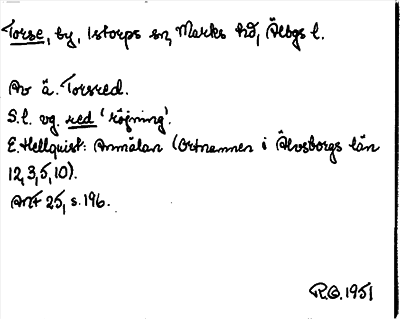 Torse, by, Istorps sn, Marks hd, Älvsbgs l.
Av ä. Torsred.
S.l. vg. red 'röjning'.
E. Hellquist: Anmälan (Ortnamnen i Älvsborgs län
12,3,5,10).
ANF 25, s. 196.
R.O. 1951